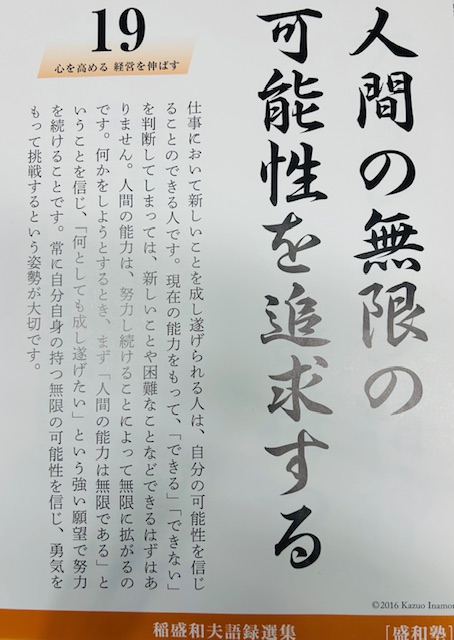 人間の無限の
可能性を追求する
19
心を高める 経営を伸ばす
仕事において新しいことを成し遂げられる人は、自分の可能性を信じ
ることのできる人です。現在の能力をもって、「できる」「できない」
を判断してしまっては、新しいことや困難なことなどできるはずはあ
りません。人間の能力は、努力し続けることによって無限に拡がるの
です。何かをしようとするとき、まず「人間の能力は無限である」と
いうことを信じ、「何としても成し遂げたい」という強い願望で努力
を続けることです。常に自分自身の持つ無限の可能性を信じ、勇気を
もって挑戦するという姿勢が大切です。
©2016 Kazuo Inamor
稲盛和夫語録選集
[盛和塾]